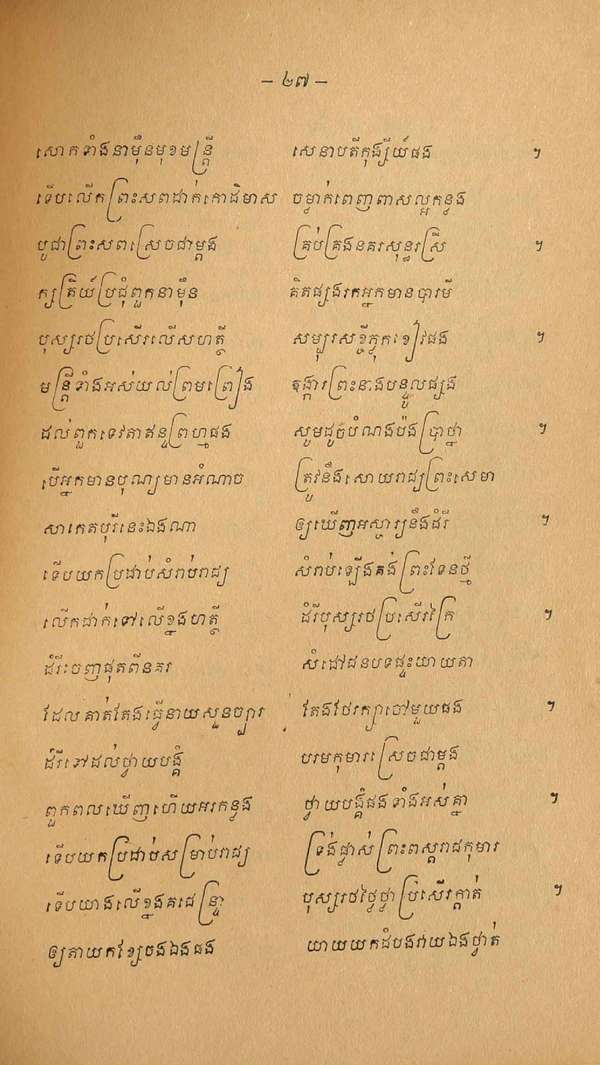 – ២៧ –
សោកទាំងនាម៉ឺនមុខមន្ត្រី សេនាបតីកុងស៊ីយ៍ផង ៗ
ទើបលើកព្រះសពដាក់កោដិមាស ចម្លាក់ពេញពាសល្អកន្លង
បូជាព្រះសពស្រេចជាម្ដង គ្រប់គ្រងនគរសុន្ធរស្រី ៗ
ក្សត្រិយ៍ប្រជុំពួកនាម៉ឺន គិតផ្សងរកអ្នកមានបារមី
បុស្សរថប្រសើរលើសហត្ថី សម្បុរសខ្ចីភ្លុកខៀវផង ៗ
មន្ត្រីទាំងអស់យល់ព្រមព្រៀង ឧង្ការព្រះនាងបន្ទូលផ្សង
ដល់ពួកទេវតាឥន្ទព្រហ្មផង សូមដូចបំណងប៉ងប្រាថ្នា ៗ
បើអ្នកមានបុណ្យមានអំណាច ត្រូវនឹងសោយរាជ្យព្រះសេមា
សាកេតបុរីនេះឯងណា ឲ្យឃើញអស្ចារ្យនឹងដំរី ៗ
ទើបយកប្រដាប់សំរាប់រាជ្យ សំរាប់ឡើងគង់ព្រះទែនថ្មី
លើកដាក់ទៅលើខ្នងហត្ថី ដំរីបុស្សរថប្រសើរក្រៃ ៗ
ដំរីរះចេញផុតពីនគរ សំដៅជនបទផ្ទះយាយតា
ដែលគាត់តែងធ្វើនាយសួនច្បារ តែងថែរក្សានៅមួយផង ៗ
ដំរីទៅដល់ថ្វាយបង្គំ បរមកុមារស្រេចជាម្ដង
ពួកពលឃើញហើយអរកន្លង ថ្វាយបង្គំផងទាំងអស់គ្នា ៗ
ទើបយកប្រដាប់សម្រាប់រាជ្យ ទ្រង់ផ្លាស់ព្រះពស្ត្ររាជកុមារ
ទើបយាងលើខ្នងគជេន្ទ្រា បុស្សរថថ្លៃថ្លាប្រសើរក្ដាត់ ៗ
ឲ្យតាយកខ្សែចងឯងផង យាយយកដំបងវាយឯងថ្វាត់